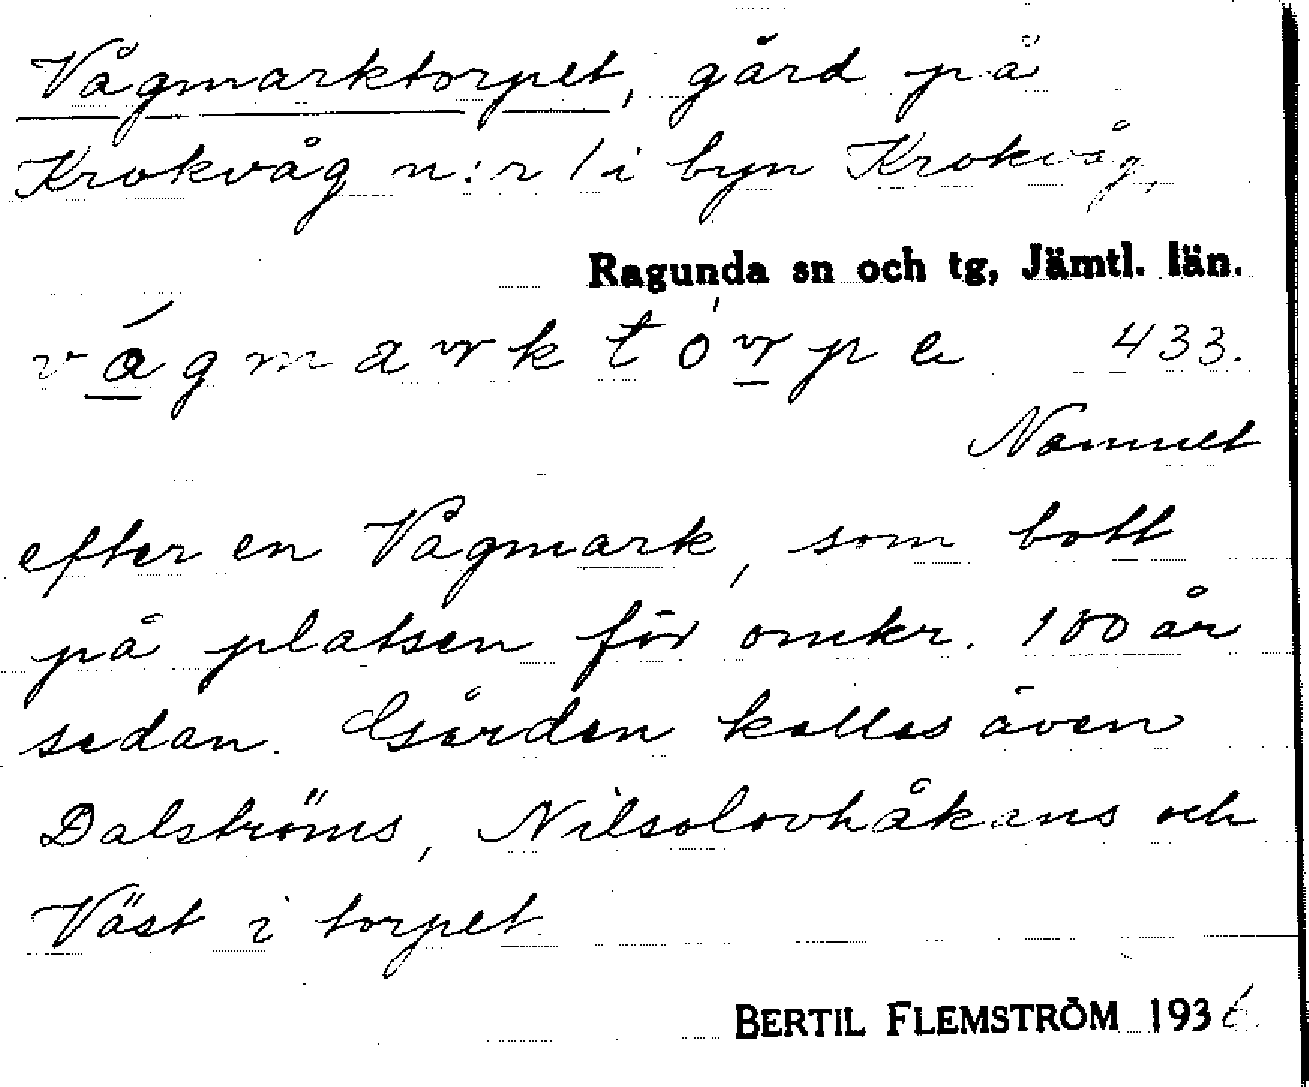 Vågmarktorpet, gård på
Krokvåg n:r 1 i byn Krokvåg,
Ragunda sn och tg, Jämtl. län.
vågmarktórpe 433.
Namnet
efter en Vågmark, som bott
på platsen för omkr. 100 år
sedan. Gården kallas även
Dalströms, Nilsolovhåkans och
Väst i torpet
BERTIL FLEMSTRÖM 1936